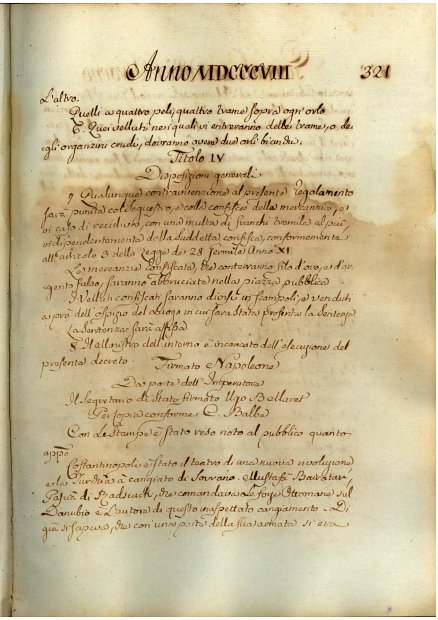 Anno MDCCCVIII 321
L'altro.
Quelli a quattro peli, quattro trame sopra ogn'orlo
Quei velluti nei quali vi entreranno delle trame, o de
gli organzini crudi, dovranno avere due orli bianchi.
Titolo IV
Disposizioni generali
Qualunque contravvenzione al presente regolamento
sarà punita col sequestro, e colla confisca della mercanzia, e
in caso di recidiva, con una multa di franchi tremila al più,
indipendentemente dalla suddetta confisca, conformemente
all'articolo 3 della Legge de' 28 Germile Anno XI.
Le mercanzie confiscate, che conterranno filo d'oro, e d'ar
gento falso, saranno abbruciate nella piazza pubblica
I Velluti confiscati saranno divisi in scampoli, e venduti
a prò dell'ospizio del luogo in cui sarà stata proferita la sentenza
La sentenza sarà affissa
8. Il Ministro dell'interno è incaricato dell'esecuzione del
presente decreto. Firmato Napoleone
Da parte dell'Imperatore
Il Segretario di Stato firmato Ugo
Per copia conforme C. Balbo
Con le stampe è stato reso noto al pubblico quanto
appo
Costantinopoli è stato il teatro di una nuova rivoluzione
e la Turchia à cangiato di Sovrano. Mustafà
Pascià di che comandava le forze Ottomane sul
Danubio è l'autore di questo inaspettato cangiamento. Di
già si sapeva, che con una parte della sua armata si era